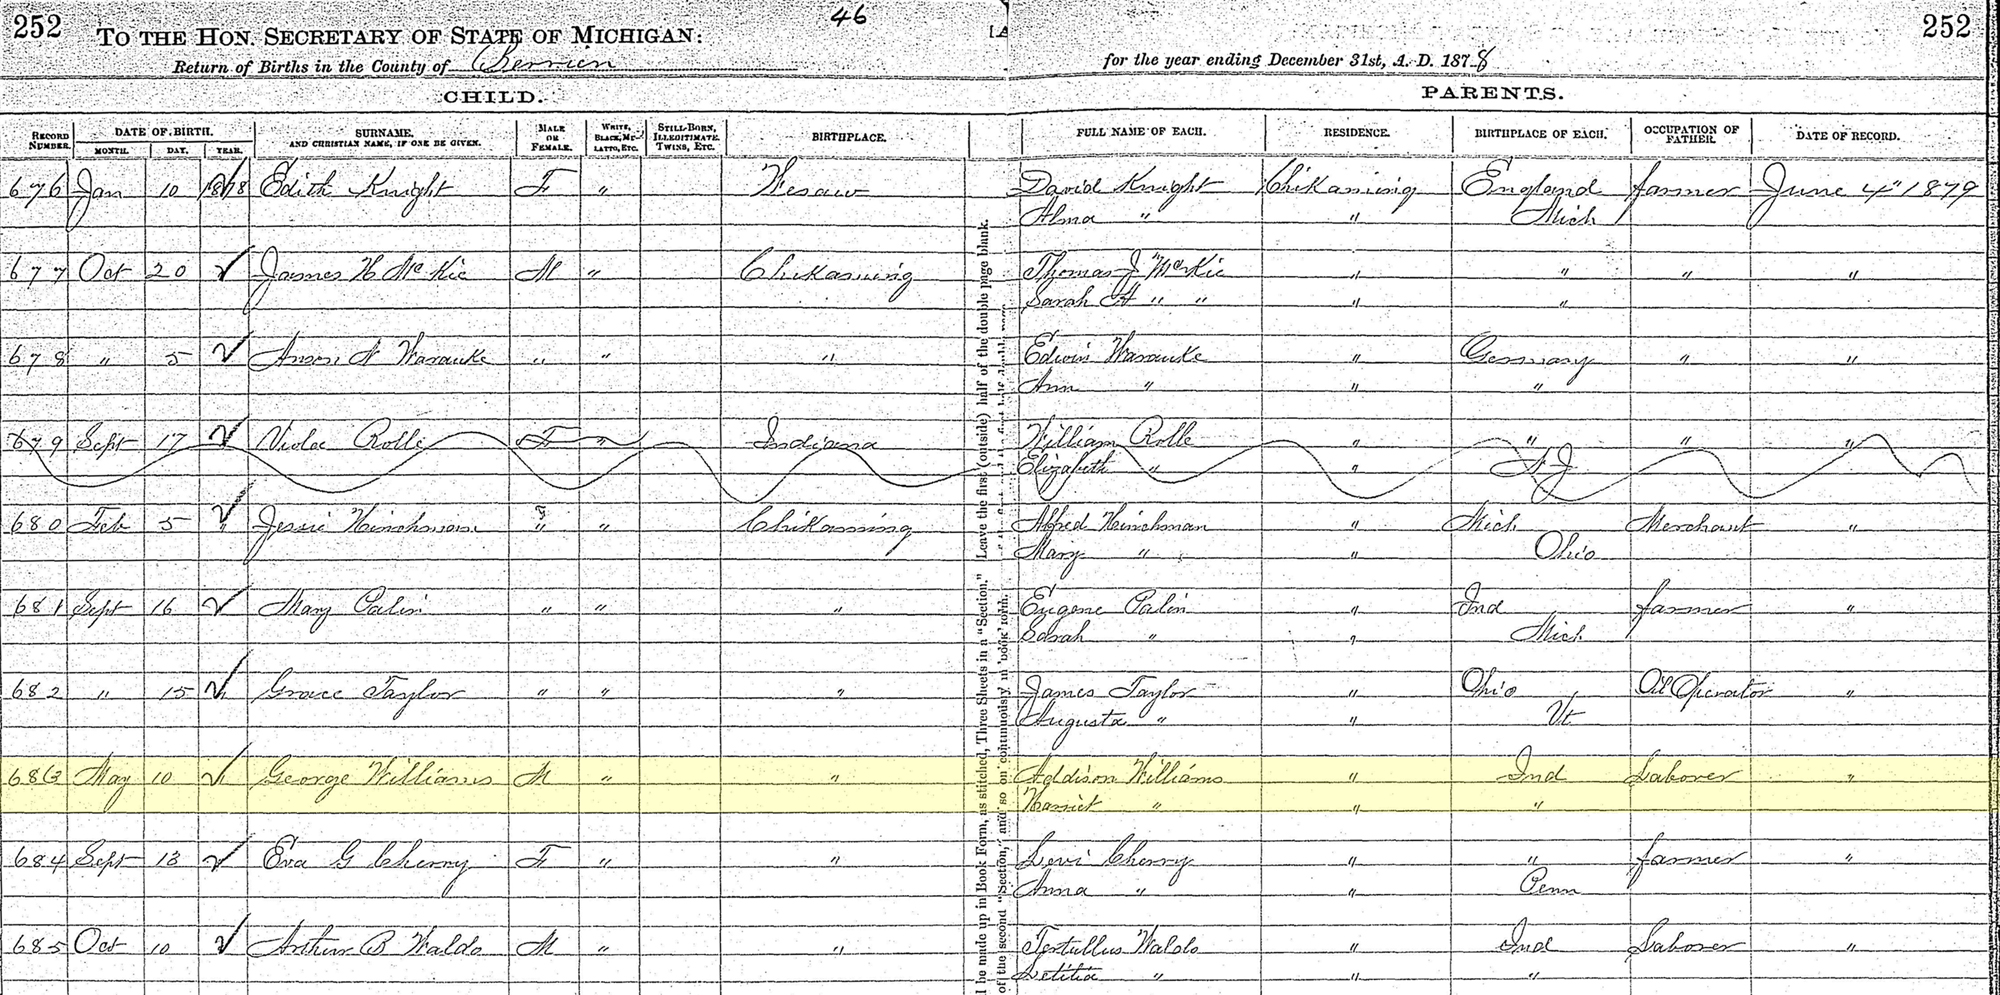 252
46
252
TO THE HON. SECRETARY OF STATE OF MICHIGAN:
Return of Births in the County of Berrien
for the year ending December 31st, A. D. 1878
CHILD.
PARENTS.
RECORD NUMBER. DATE OF BIRTH. MONTH. DAY. YEAR. SURNAME. AND CHRISTIAN NAME, IF ONE BE GIVEN. MALE OR FEMALE. WHITE, BLACK, MULATTO, ETC. STILL-BORN, ILLEGITIMATE, TWINS, ETC. BIRTHPLACE. FULL NAME OF EACH. RESIDENCE. BIRTHPLACE OF EACH. OCCUPATION OF FATHER. DATE OF RECORD.
676 Jan 10 1878 Edith Knight F " Wesaw David Knight Chikaming England farmer June 4" 1879
Alma " " Mich
677 Oct 20 " James H McKie M " Chikaming Thomas J McKie " " " "
Sarah A " " " "
678 " 5 " Anson N " " " Edwin " Germany " "
Ann " " "
679 Sept 17 " Viola Rolle F " Indiana William Rolle " " " "
Elizabeth " " N J
680 Feb 5 " Jessie Hinchman " " Chikaming Alfred Hinchman " Mich Merchant "
Mary " " Ohio
681 Sept 16 " Mary Palin " " " Eugene Palin " Ind farmer "
Sarah " " Mich
682 " 15 " Grace Taylor " " " James Taylor " Ohio Operator "
Augusta " " Vt
683 May 10 " George Williams M " " Addison Williams " Ind Laborer "
Harriet " " "
684 Sept 13 " Eva G Cherry F " " Levi Cherry " " farmer "
Anna " " Penn
685 Oct 10 " Arthur B Waldo M " " Tertullus Waldo " Ind Laborer "
Letitia " " "
be made up in Book Form, as stitched, Three Sheets in a "Section." [Leave the first (outside) half of the double page blank.
of the second "Section," and so on continuously in book form.